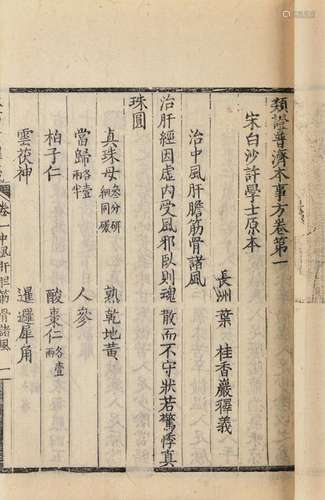 類證普濟本事方卷第一
宋白沙許學士原本
長洲 葉 桂香巖釋義
治中風肝膽筋骨諸風
治肝經因虛內受風邪臥則魂散而不守狀若驚悸真
珠圓
真珠母 叁分研細同碾 熟乾地黃
當歸 各壹兩半 人參
柏子仁 酸棗仁 各壹兩
雲茯神 暹邏犀角
卷一中風肝胆筋骨諸風 一